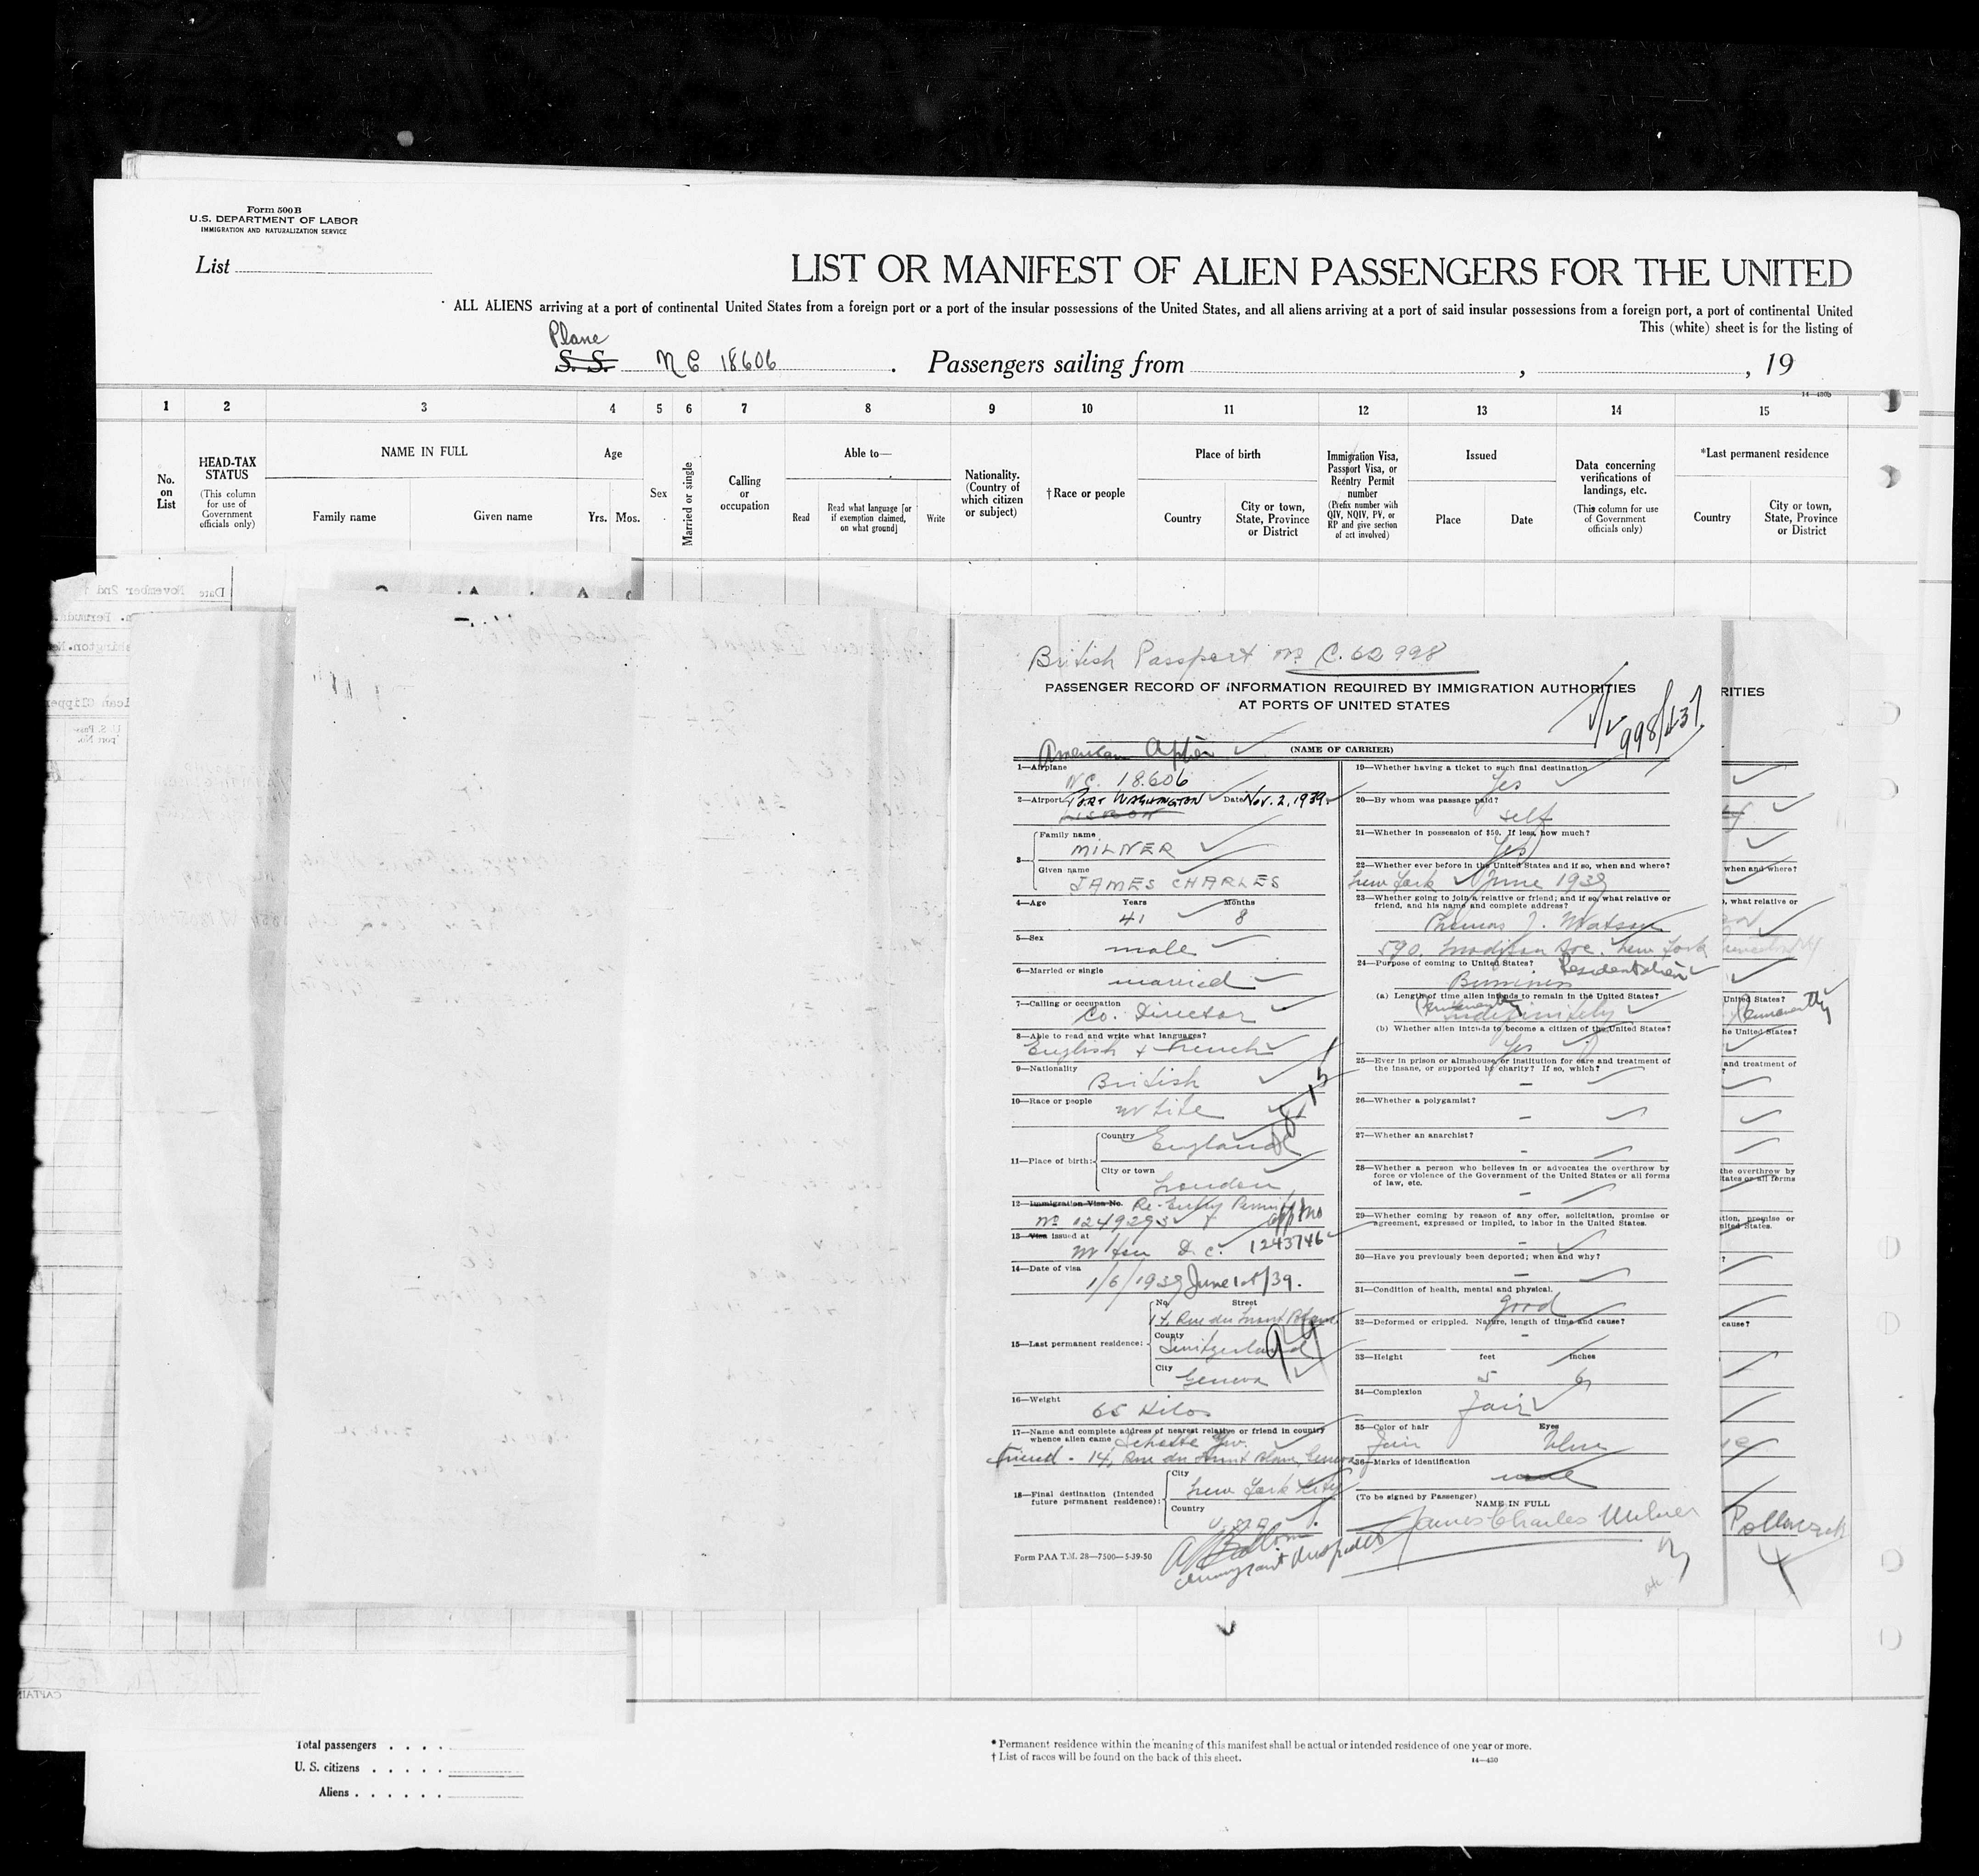 Form 500 B
U.S. DEPARTMENT OF LABOR
IMMIGRATION AND NATURALIZATION SERVICE
List
LIST OR MANIFEST OF ALIEN PASSENGERS FOR THE UNITED
ALL ALIENS arriving at a port of continental United States from a foreign port or a port of the insular possessions of the United States, and all aliens arriving at a port of said insular possessions from a foreign port, a port of continental United
This (white) sheet is for the listing of
Plane
S. S. NC 18606 . Passengers sailing from , , 19
14—430b
1 2 3 4 5 6 7 8 9 10 11 12 13 14 15
No. on List
HEAD-TAX STATUS (This column for use of Government officials only)
NAME IN FULL
Family name Given name
Age
Yrs. Mos.
Sex
Married or single
Calling or occupation
Able to—
Read Read what language [or if exemption claimed, on what ground] Write
Nationality. (Country of which citizen or subject)
†Race or people
Place of birth
Country City or town, State, Province or District
Immigration Visa, Passport Visa, or Reentry Permit number (Prefix number with QIV, NQIV, PV, or RP and give section of act involved)
Issued
Place Date
Data concerning verifications of landings, etc. (This column for use of Government officials only)
*Last permanent residence
Country City or town, State, Province or District
Date November 2nd
British Passport No C. 62998
PASSENGER RECORD OF INFORMATION REQUIRED BY IMMIGRATION AUTHORITIES
AT PORTS OF UNITED STATES
998/437
American Clipper
(NAME OF CARRIER)
1—Airplane NC. 18.606
2—Airport PORT WASHINGTON Date Nov. 2, 1939
LISBON
3— Family name MILNER
Given name JAMES CHARLES
4—Age Years 41 Months 8
5—Sex male
6—Married or single married
7—Calling or occupation Co. Director
8—Able to read and write what languages?
English + French
9—Nationality British
10—Race or people White
11—Place of birth: Country England
City or town London
12—Immigration Visa No. Re-Entry Permit
No 1249293
13—Visa issued at Wton D.C. 1243746
14—Date of visa 1/6/1939 June 1st/39.
15—Last permanent residence: No. Street
14, Rue du Mont Blanc
County Switzerland
City Geneva
16—Weight 65 Kilos
17—Name and complete address of nearest relative or friend in country
whence alien came
friend - 14, Rue du Mont Blanc, Geneva
18—Final destination (Intended future permanent residence): City New York City
Country U.S.A.
Form PAA T.M. 28—7500—5-39-50
Immigrant Inspector
19—Whether having a ticket to such final destination
Yes
20—By whom was passage paid?
self
21—Whether in possession of $50. If less, how much?
Yes
22—Whether ever before in the United States and if so, when and where?
New York June 1939
23—Whether going to join a relative or friend; and if so, what relative or
friend, and his name and complete address?
Thomas J. Watson
590, Madison Ave. New York
24—Purpose of coming to United States? Resident alien
Business
(a) Length of time alien intends to remain in the United States?
Permanently
indefinitely
(b) Whether alien intends to become a citizen of the United States?
Yes
25—Ever in prison or almshouse or institution for care and treatment of
the insane, or supported by charity? If so, which?
–
26—Whether a polygamist?
–
27—Whether an anarchist?
–
28—Whether a person who believes in or advocates the overthrow by
force or violence of the Government of the United States or all forms
of law, etc.
–
29—Whether coming by reason of any offer, solicitation, promise or
agreement, expressed or implied, to labor in the United States.
–
30—Have you previously been deported; when and why?
–
31—Condition of health, mental and physical.
good
32—Deformed or crippled. Nature, length of time and cause?
–
33—Height feet inches
5 6
34—Complexion
fair
35—Color of hair Eyes
fair blue
36—Marks of identification
none
(To be signed by Passenger)
NAME IN FULL
James Charles Milner
RITIES
when and where?
, what relative or
United States?
Permanently
he United States?
and treatment of
the overthrow by
tates or all forms
tion, promise or
nited States.
cause?
Total passengers . . . .
U. S. citizens . . . . .
Aliens . . . . . .
* Permanent residence within the meaning of this manifest shall be actual or intended residence of one year or more.
† List of races will be found on the back of this sheet.
14—430